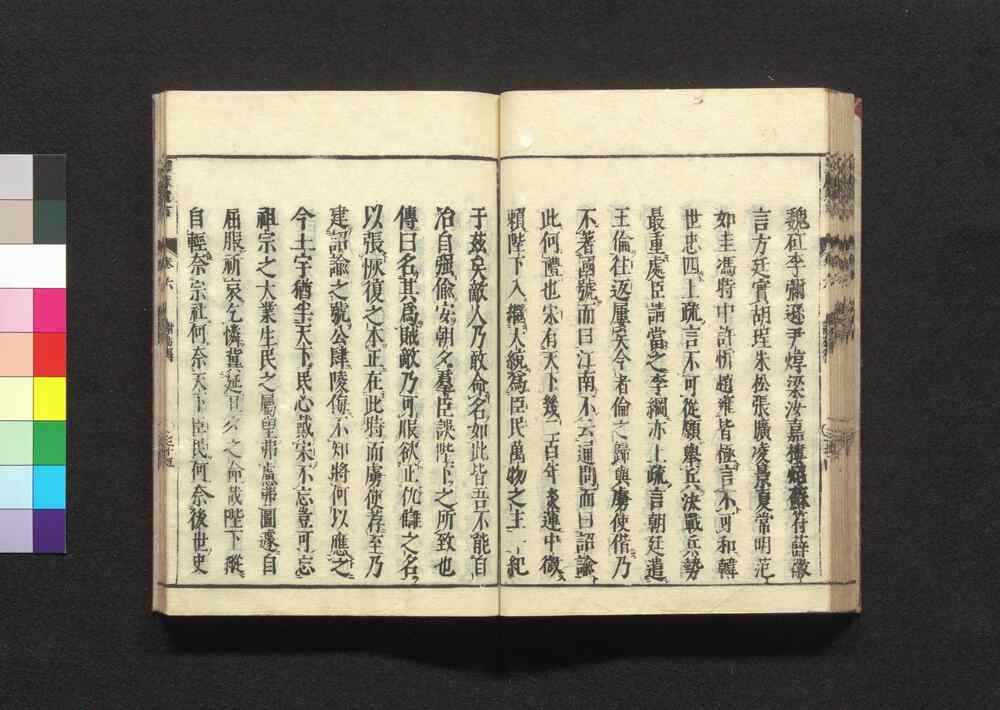 魏矼李彌遜尹焞梁汝嘉樓炤蘇符薛徽
言方廷實胡珵朱松張廣凌景夏常明范
如圭馮時中許忻趙雍皆極言不可和韓
世忠四上疏言不可從願舉兵決戰兵勢
最重處臣請當之李綱亦上疏言朝廷遣
王倫往返屢矣今者倫之歸與虜使偕乃
不著國號而曰江南不云通問而曰詔諭
此何禮也宋有天下幾二百年遭中微
賴陛下入繼大統爲臣民萬物之主一紀
于茲矣敵人乃敢命名如此皆吾不能自
冶自强偷安朝夕羣臣誤陛下之所致也
傳曰名其爲賊敵乃可服欲正仇讎之名
以張恢復之本正在此時而虜使荐至乃
建詔諭之號公肆陵侮不知將何以應之
今土宇猶半天下民心戴宋不忘豈可忘
祖宗之大業生民之屬望弗慮弗圖遽自
屈服祈哀乞憐冀延旦夕之命哉陛下縱
自輕奈宗社何奈天下臣民何奈後世史
卷六